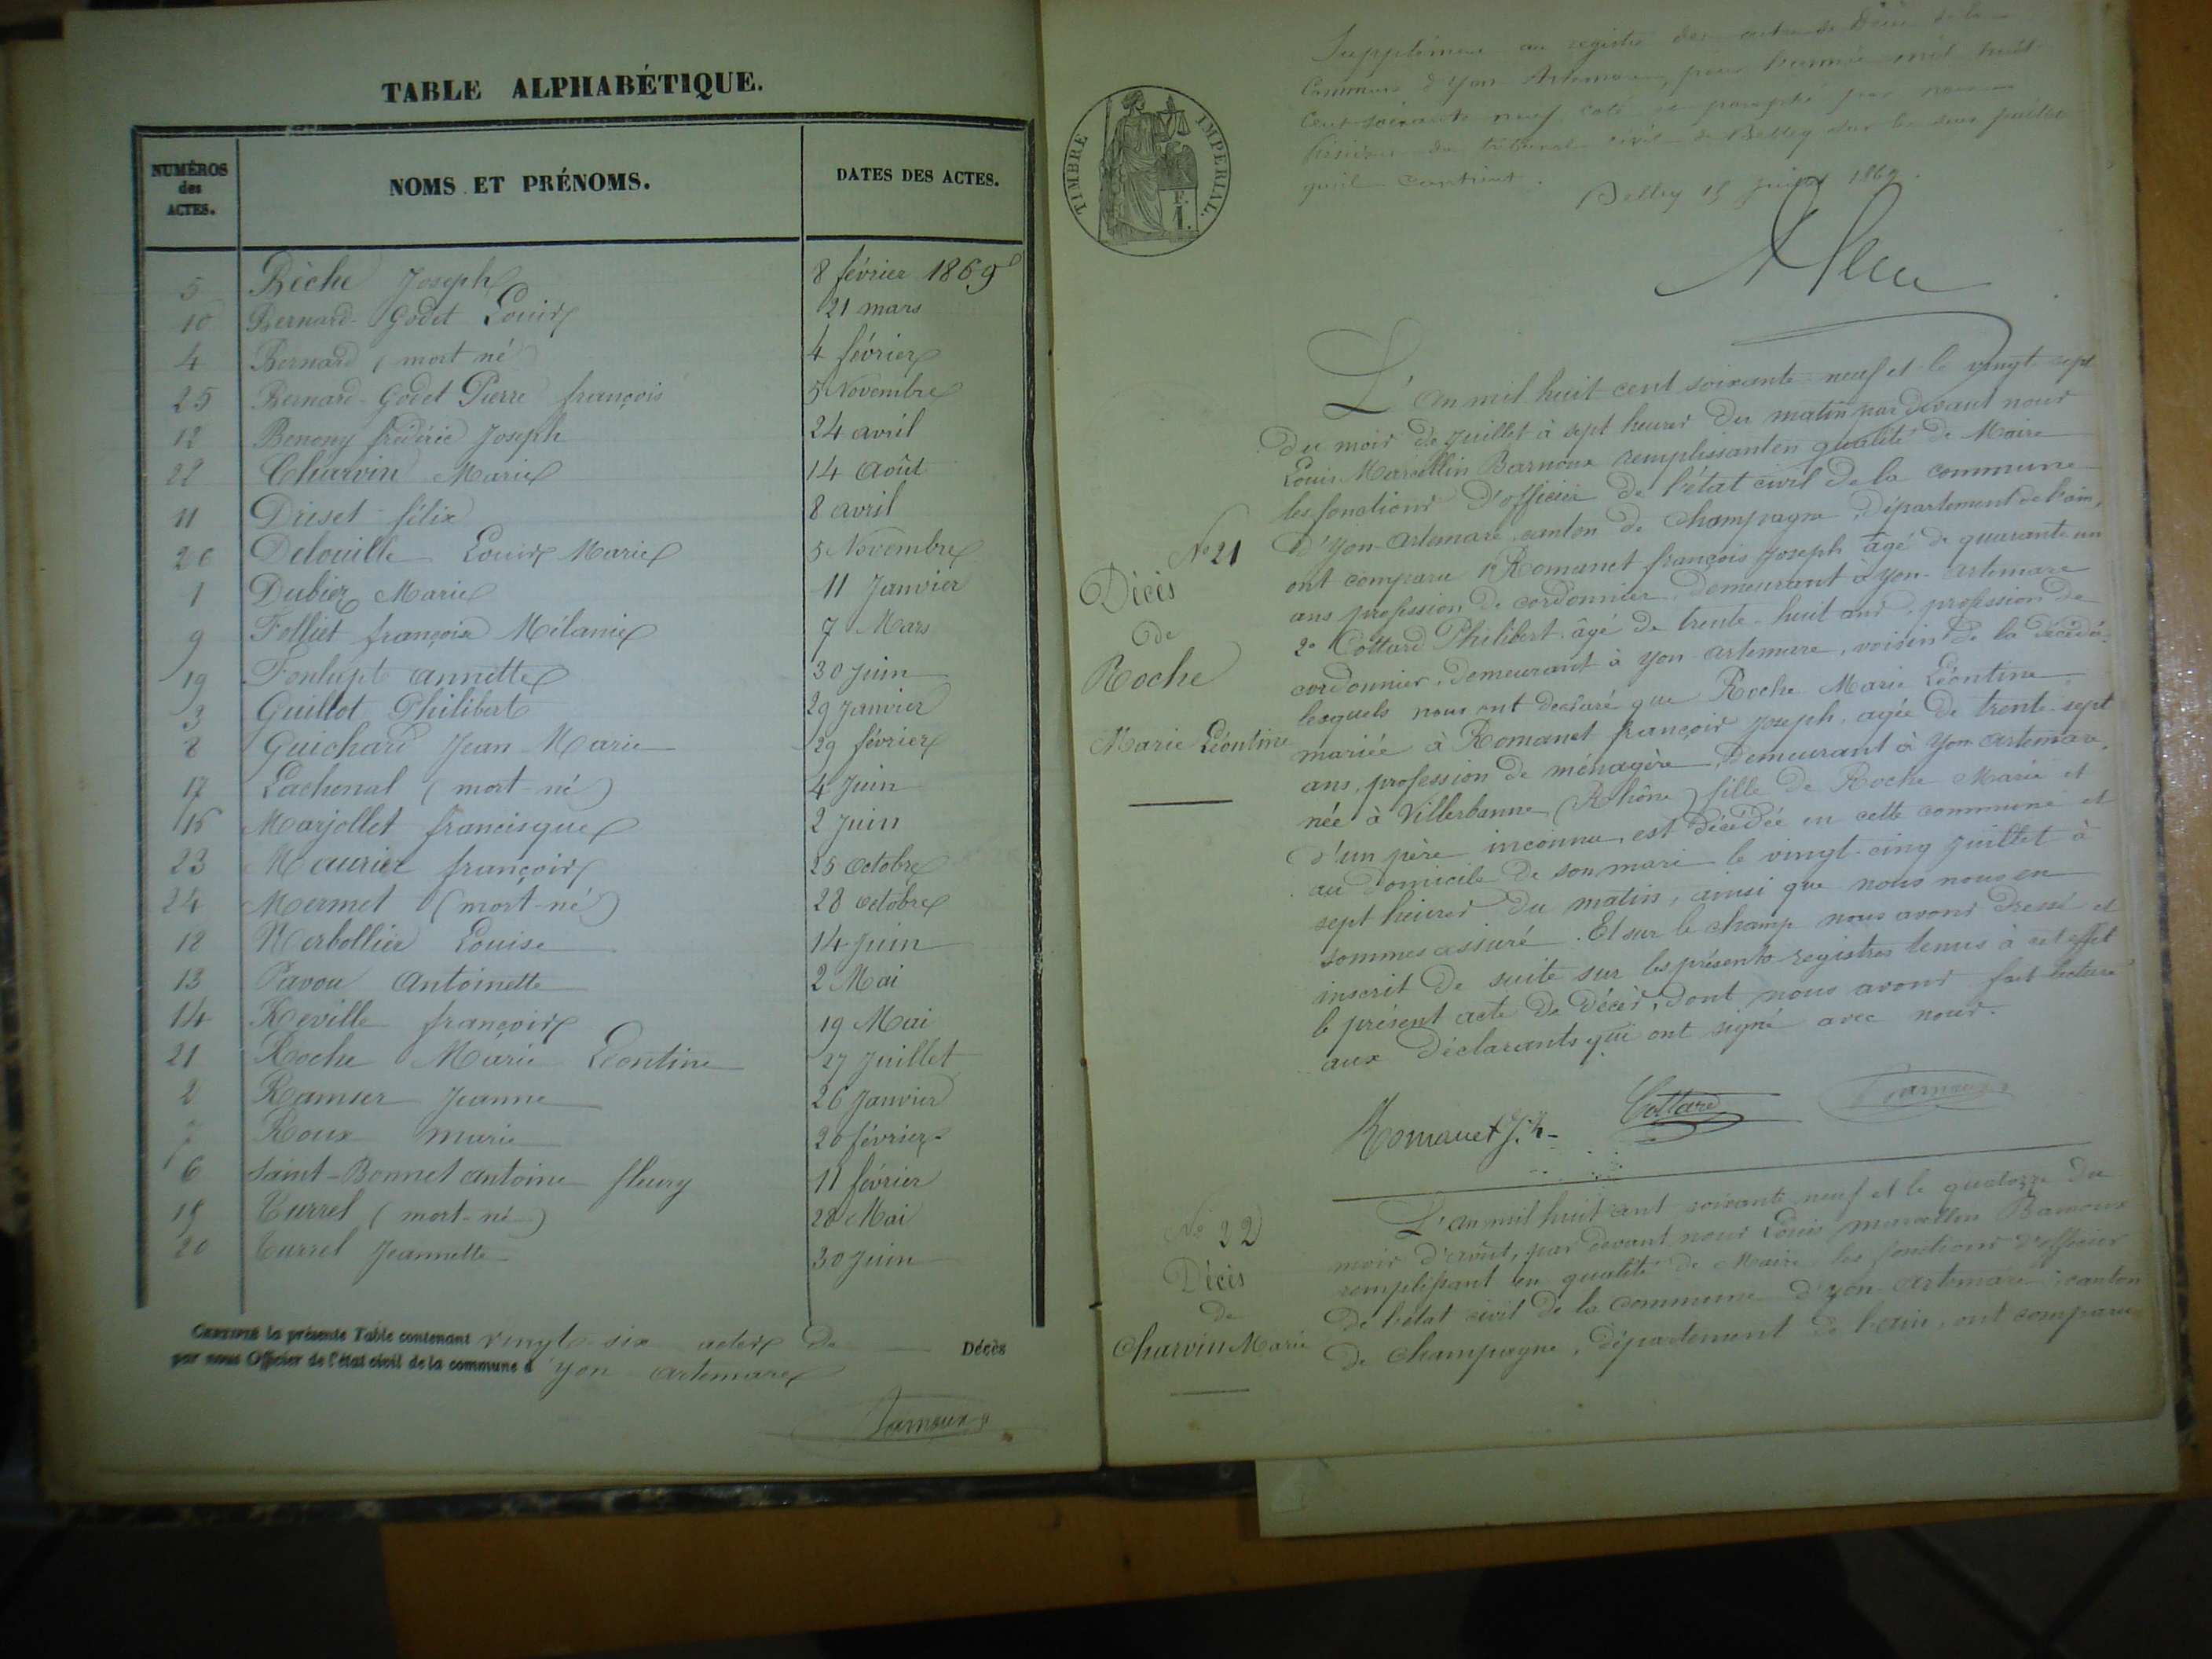 TABLE ALPHABÉTIQUE.
NUMÉROS des ACTES. NOMS ET PRÉNOMS. DATES DES ACTES.
5 Bèche Joseph 8 février 1869
10 Bernard-Godet Louis 21 mars
4 Bernard (mort né) 4 février
25 Bernard-Godet Pierre françois 5 Novembre
12 Benony frédéric Joseph 24 avril
22 Charvin Marie 14 Août
11 Driset félix 8 avril
26 Delouille Louis Marie 5 Novembre
1 Dubier Marie 11 Janvier
9 Folliet françoise Mélanie 7 Mars
19 Fonlupt annette 30 Juin
3 Guillot Philibert 29 Janvier
8 Guichard Jean-Marie 29 février
17 Lachenal (mort-né) 4 Juin
16 Marjollet francisque 2 Juin
23 Maurier françois 25 Octobre
24 Mermet (mort-né) 28 octobre
18 Nerbollier Louise 14 Juin
13 Pavou Antoinette 2 Mai
14 Reville françois 19 Mai
21 Roche Marie Léontine 27 Juillet
2 Ramser Jeanne 26 Janvier
7 Roux marie 20 février
6 Saint-Bonnet antoine fleury 11 février
15 Turrel (mort-né) 28 Mai
20 Turrel Jeannette 30 Juin
CERTIFIÉ la présente Table contenant vingt-six actes de Décès
par nous Officier de l'état civil de la commune d'yon artemare
Barnoux
TIMBRE IMPÉRIAL.
F. 1.
Supplément au registre des actes de décès de la
Commune d'yon Artemare, pour l'année mil huit
cent soixante neuf, coté et paraphé par nous
président du tribunal civil de Belley sur les deux feuilles
qu'il contient.
Belley 15 juillet 1869.
L'an mil huit cent soixante-neuf et le vingt-sept
du mois de Juillet à sept heures du matin par devant nous
Louis Marcellin Barnoux remplissant en qualité de Maire
les fonctions d'officier de l'état civil de la commune
d'Yon-Artemare, canton de Champagne, département de l'ain,
N° 21
Décès
de
Roche
Marie Léontine
ont comparu 1° Romanet françois Joseph âgé de quarante un
ans profession de cordonnier, demeurant à yon-artemare
2° Cottard Philibert âgé de trente-huit ans, profession de
cordonnier, demeurant à yon artemare, voisin de la décédée
lesquels nous ont déclaré que Roche Marie Léontine
mariée à Romanet françois Joseph, agée de trente-sept
ans, profession de ménagère, demeurant à yon artemare,
née à Villerbanne (Rhône) fille de Roche Marie et
d'un père inconnu, est décédée en cette commune et
au domicile de son mari le vingt-cinq juillet à
sept heures du matin, ainsi que nous nous en
sommes assuré. Et sur le champ nous avons dressé et
inscrit de suite sur les présents registres tenus à cet effet
le présent acte de décès, dont nous avons fait lecture
aux déclarants qui ont signé avec nous.
Romanet Cottard Barnoux
N° 22
Décès
de
Charvin Marie
L'an mil huit cent soixante neuf et le quatorze du
mois d'août, par devant nous Louis marcellin Barnoux
remplissant en qualité de Maire les fonctions d'officier
de l'état civil de la commune d'yon artemare, canton
de Champagne, département de l'ain, ont comparu